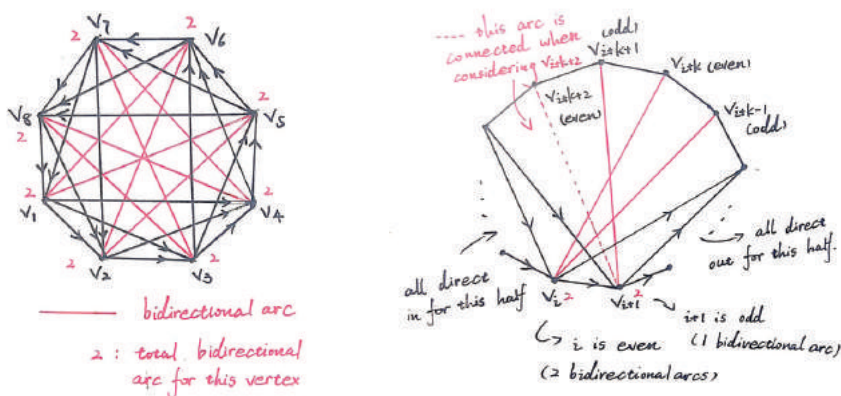 V7
2
2
V6
V8
2
2
V5
2
V1
2
V4
2
V2
2
V3
bidirectional arc
2 : total bidirectional
arc for this vertex
this arc is
connected when
considering Vi+k+2
(odd)
Vi+k+1
Vi+k (even)
Vi+k+2
(even)
Vi+k-1
(odd)
all direct
in for this half
all direct
out for this half.
Vi 2
Vi+1 2
i is even
(2 bidirectional arcs)
i+1 is odd
(1 bidivectional arc)